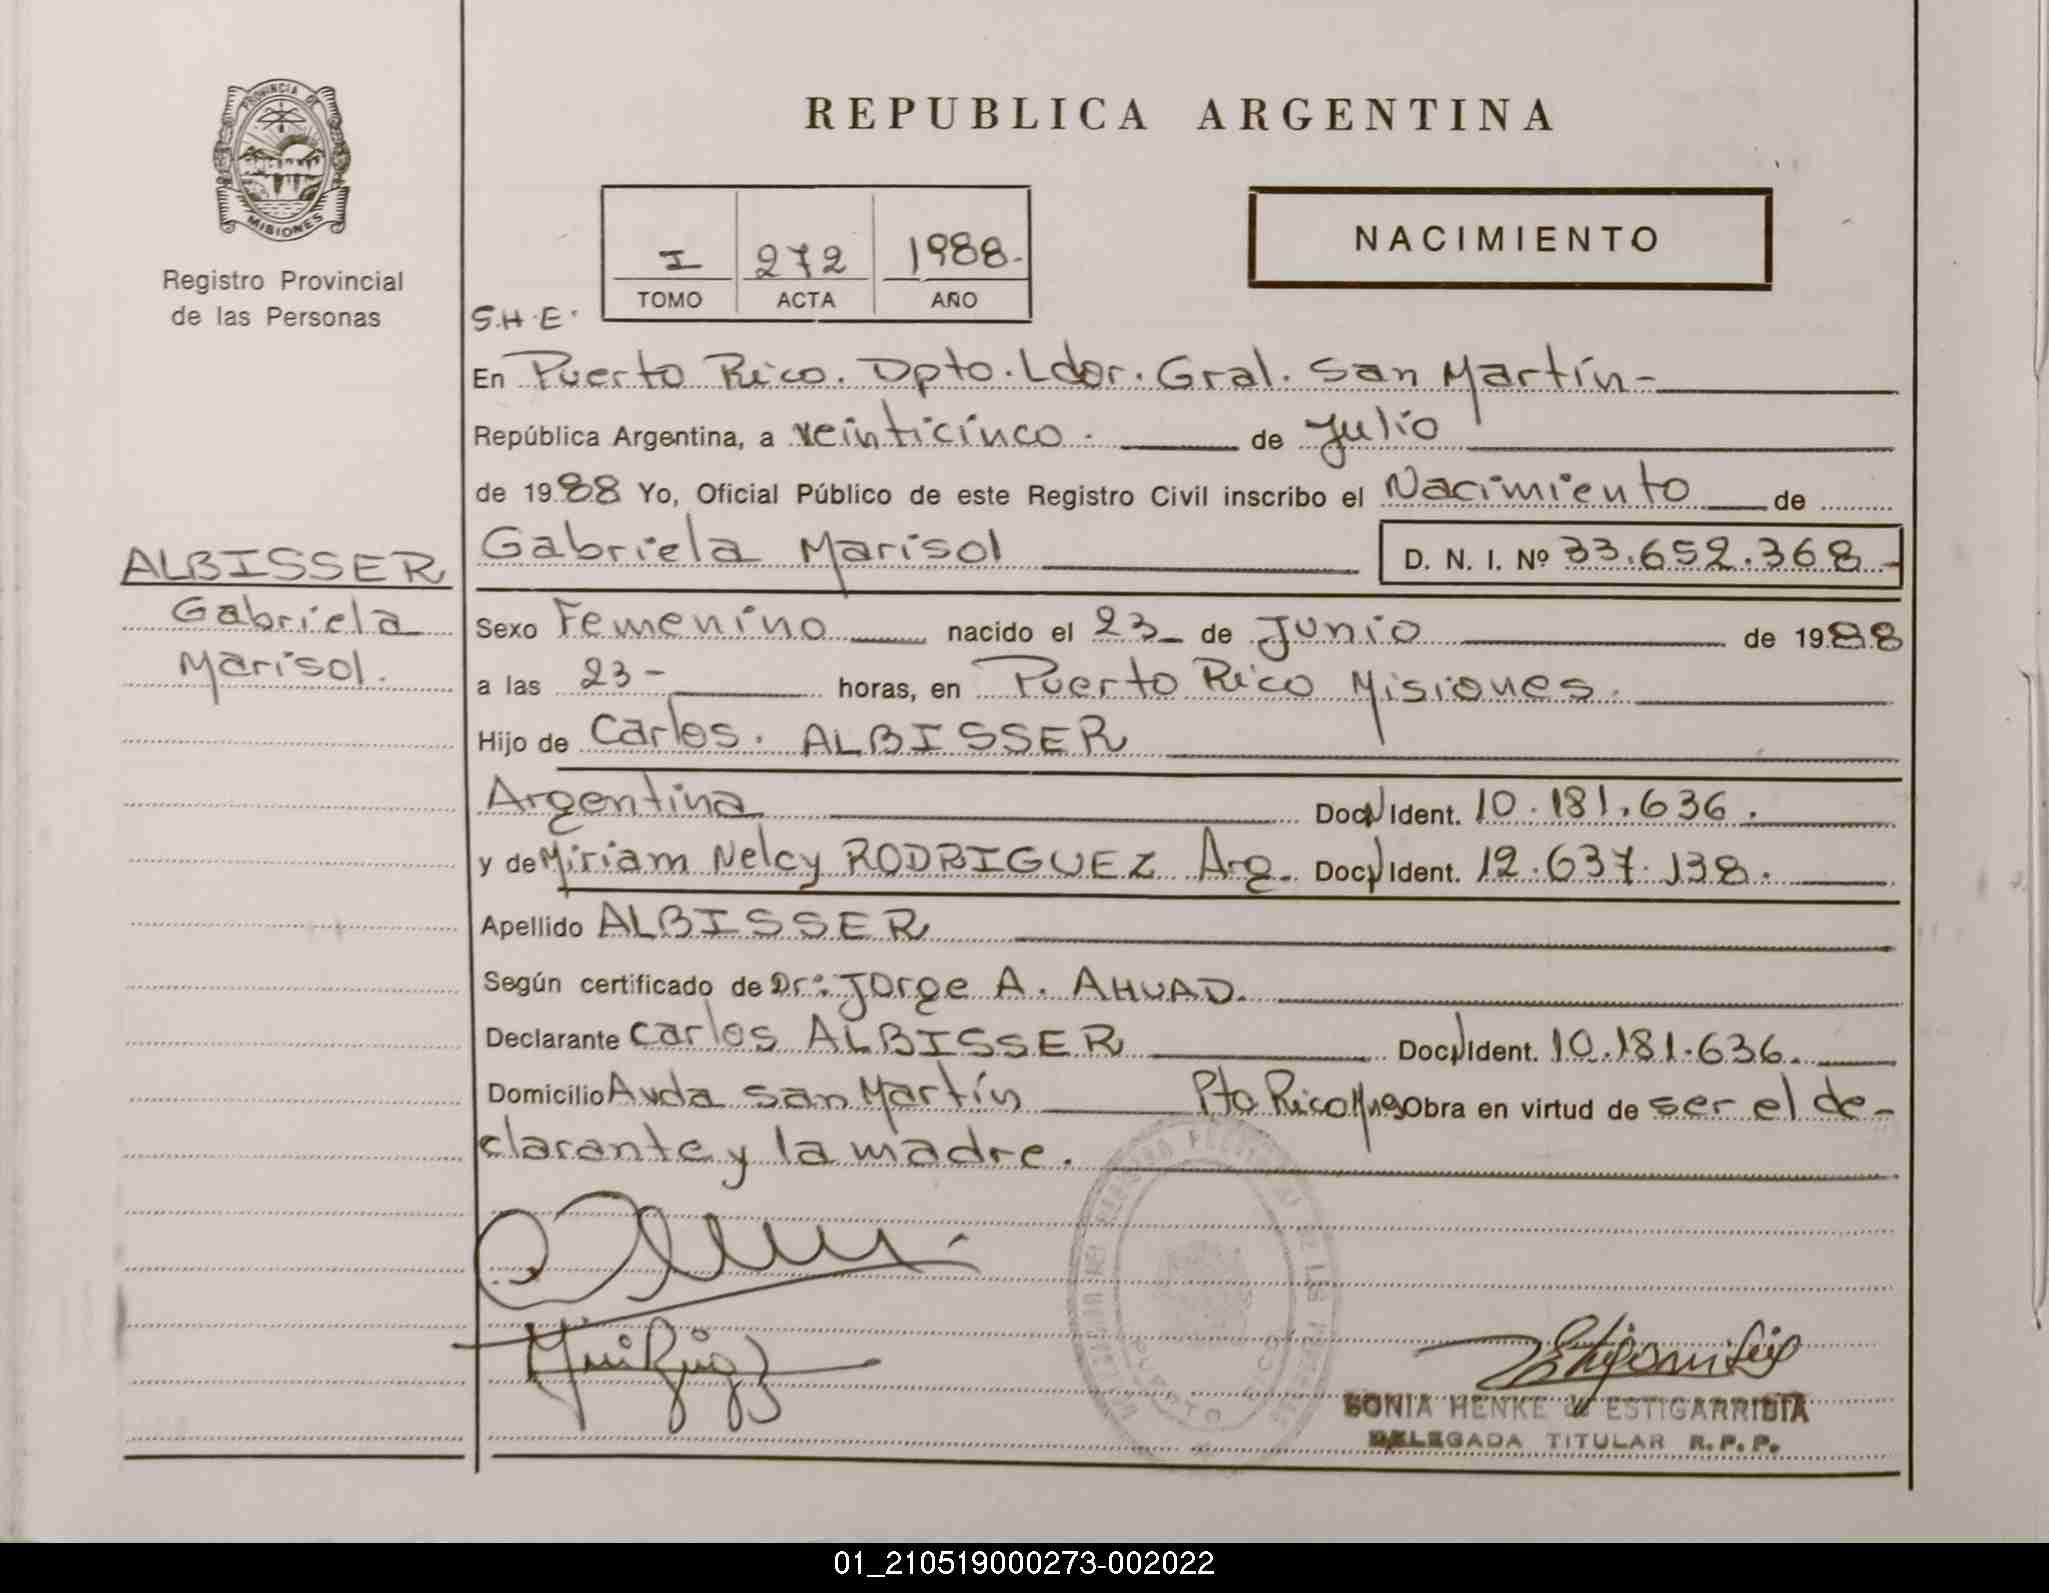 PROVINCIA DE
MISIONES
Registro Provincial
de las Personas
REPUBLICA ARGENTINA
NACIMIENTO
I 272 1988.
TOMO ACTA AÑO
S.H.E.
En Puerto Rico. Dpto. Ldor. Gral. San Martín-
República Argentina, a veinticinco. de Julio
de 1988 Yo, Oficial Público de este Registro Civil inscribo el Nacimiento de
ALBISSER
Gabriela
Marisol.
Gabriela Marisol D. N. I. Nº 33.652.368-
Sexo Femenino nacido el 23 de Junio de 1988
a las 23- horas, en Puerto Rico Misiones.
Hijo de Carlos. ALBISSER
Argentina Doc. Ident. 10.181.636.
y de Miriam Nelcy RODRIGUEZ Arg. Doc. Ident. 12.637.138.
Apellido ALBISSER
Según certificado de Dr: Jorge A. AHUAD.
Declarante Carlos ALBISSER Doc. Ident. 10.181.636.
Domicilio Avda San Martín Pto Rico Mnes Obra en virtud de ser el de-
clarante y la madre.
PUERTO RICO
SONIA HENKE de ESTIGARRIBIA
DELEGADA TITULAR R.P.P.
01_210519000273-002022